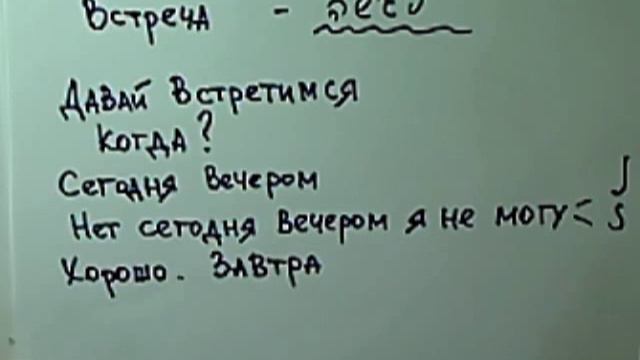 Встреча -
Давай встретимся
когда?
Сегодня вечером
Нет сегодня вечером я не могу
Хорошо. Завтра